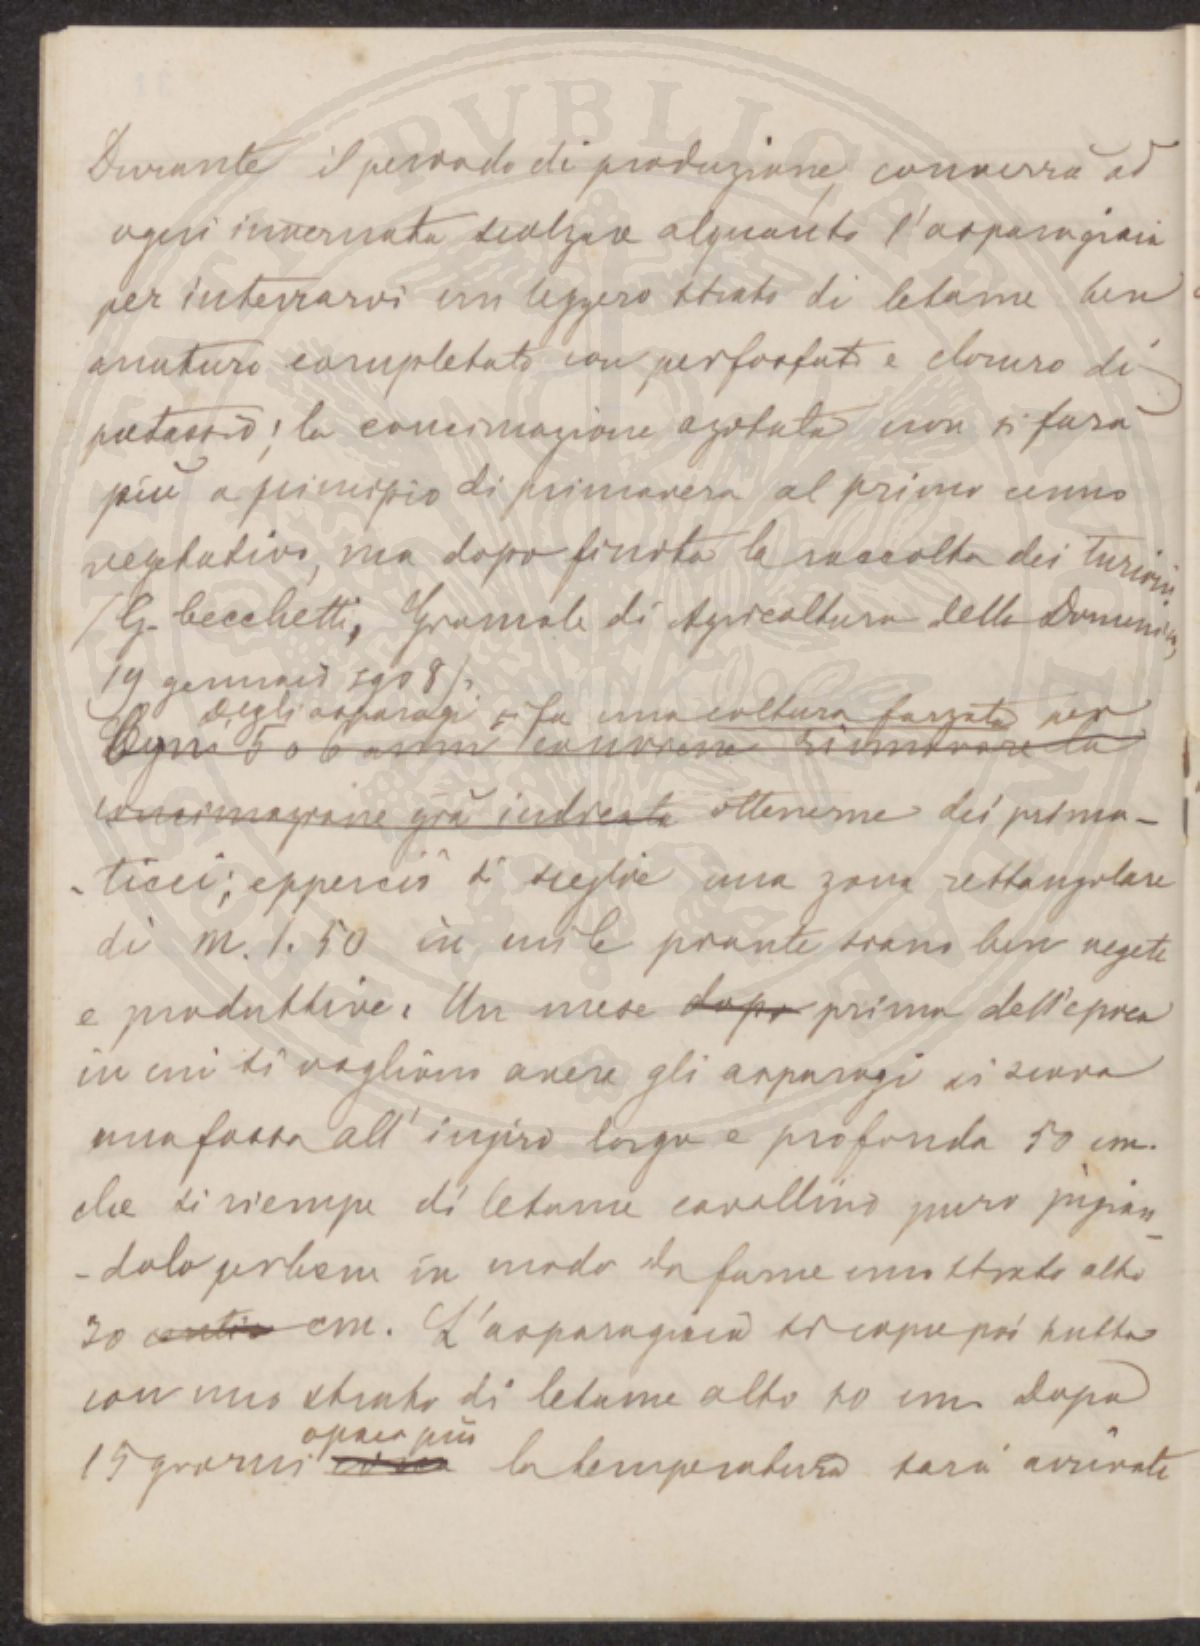 Durante il periodo di produzione, converrà ad
ogni invernata scalzare alquanto l'asparagiaia
per interrarvi un leggero strato di letame ben
maturo completato con perfosfato e cloruro di
potassio; la concimazione azotata non si farà
più a principio di primavera al primo cenno
vegetativo, ma dopo finita la raccolta dei turioni
(G. Becchetti, Giornale di Agricoltura della Domenica,
19 gennaio 1908).
Degli asparagi si fa una coltura forzata per
Ogni 5 o 6 anni conviene rinnovare la
concimazione già indicata ottenerne dei prima-
-ticci; epperciò si sceglie una zona rettangolare
di m. 1.50 in cui le piante siano ben vegete
e produttive. Un mese dopo prima dell'epoca
in cui si vogliono avere gli asparagi si scava
una fossa all'ingiro larga e profonda 50 cm.
che si riempe di letame cavallino puro pigian-
-dolo perbene in modo da farne uno strato alto
30 cm. L'asparagiaia si copre poi tutta
con uno strato di letame alto 10 cm. Dopo
o poco più
15 giorni circa la temperatura sarà arrivata
PUBLICAE